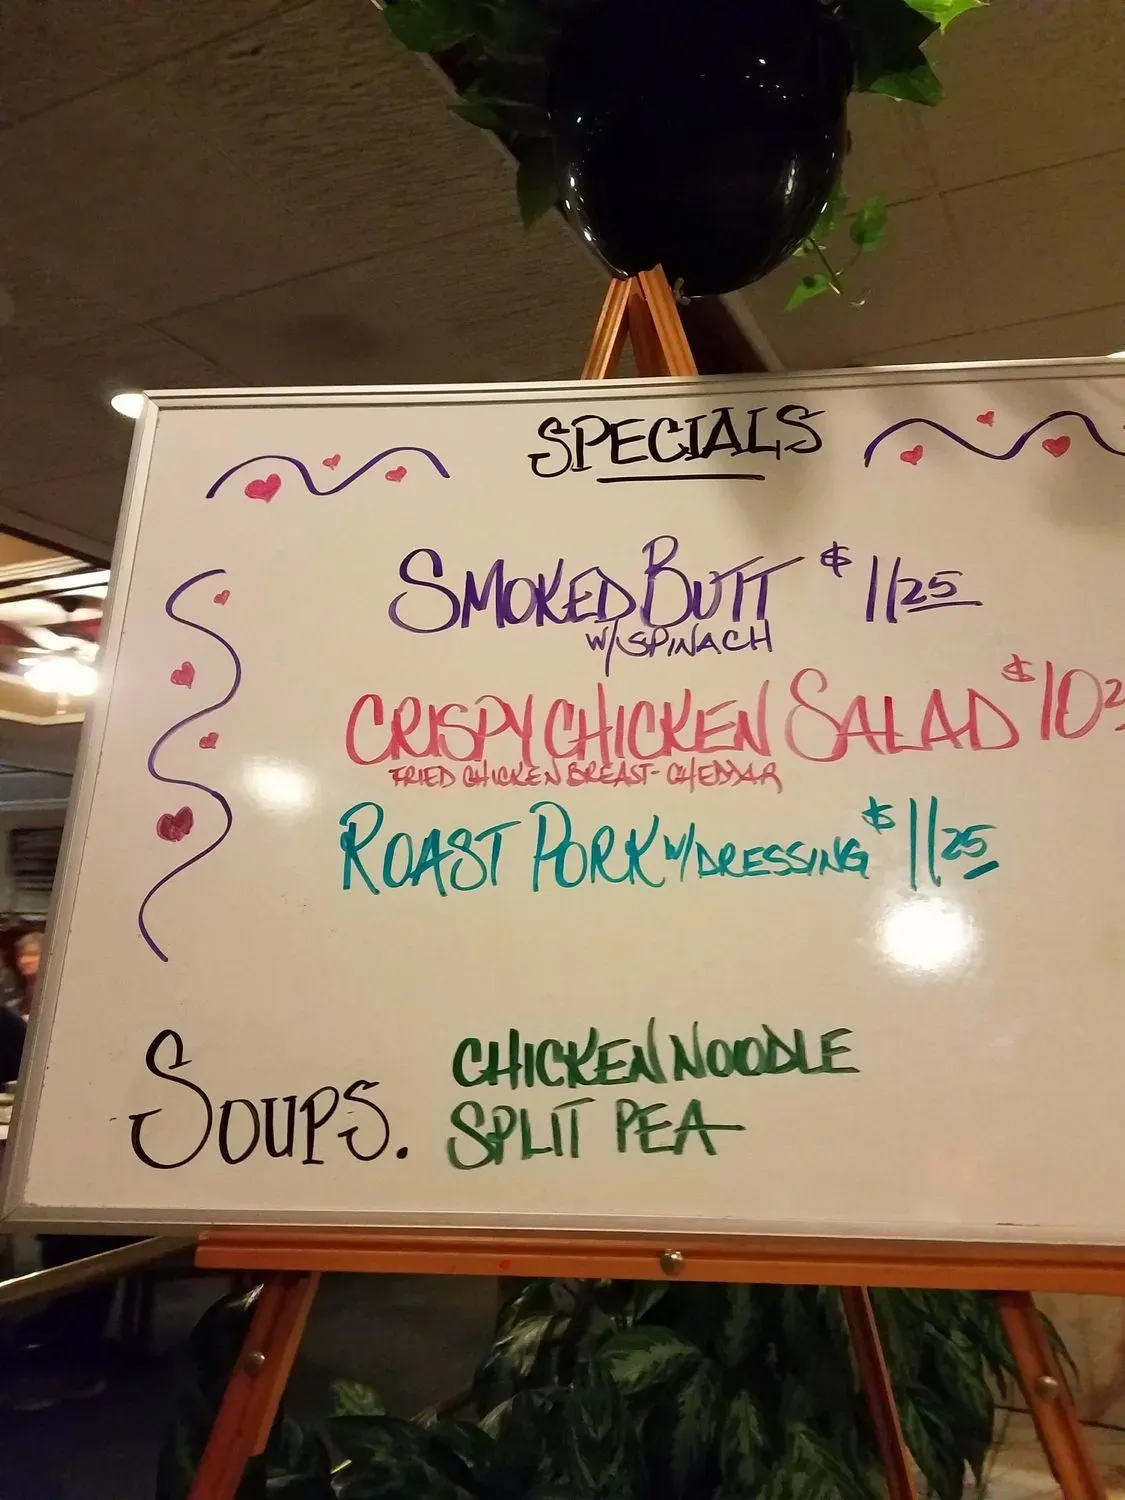 SPECIALS
SMOKED BUTT $11.25
W/SPINACH
CRISPY CHICKEN SALAD $10
FRIED CHICKEN BREAST-CHEDDAR
ROAST PORK W/DRESSING $11.25
SOUPS. CHICKEN NOODLE
SPLIT PEA